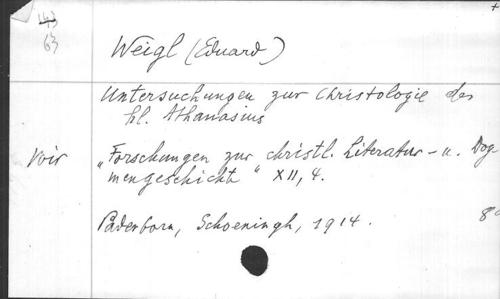 +
143
63
Weigl (Eduard)
Untersuchungen zur Christologie des
hl. Athanasius
voir
„Forschungen zur christl. Literatur- u. Dog
mengeschicht " XII, 4.
Paderborn, Schoeningh, 1914.
8°